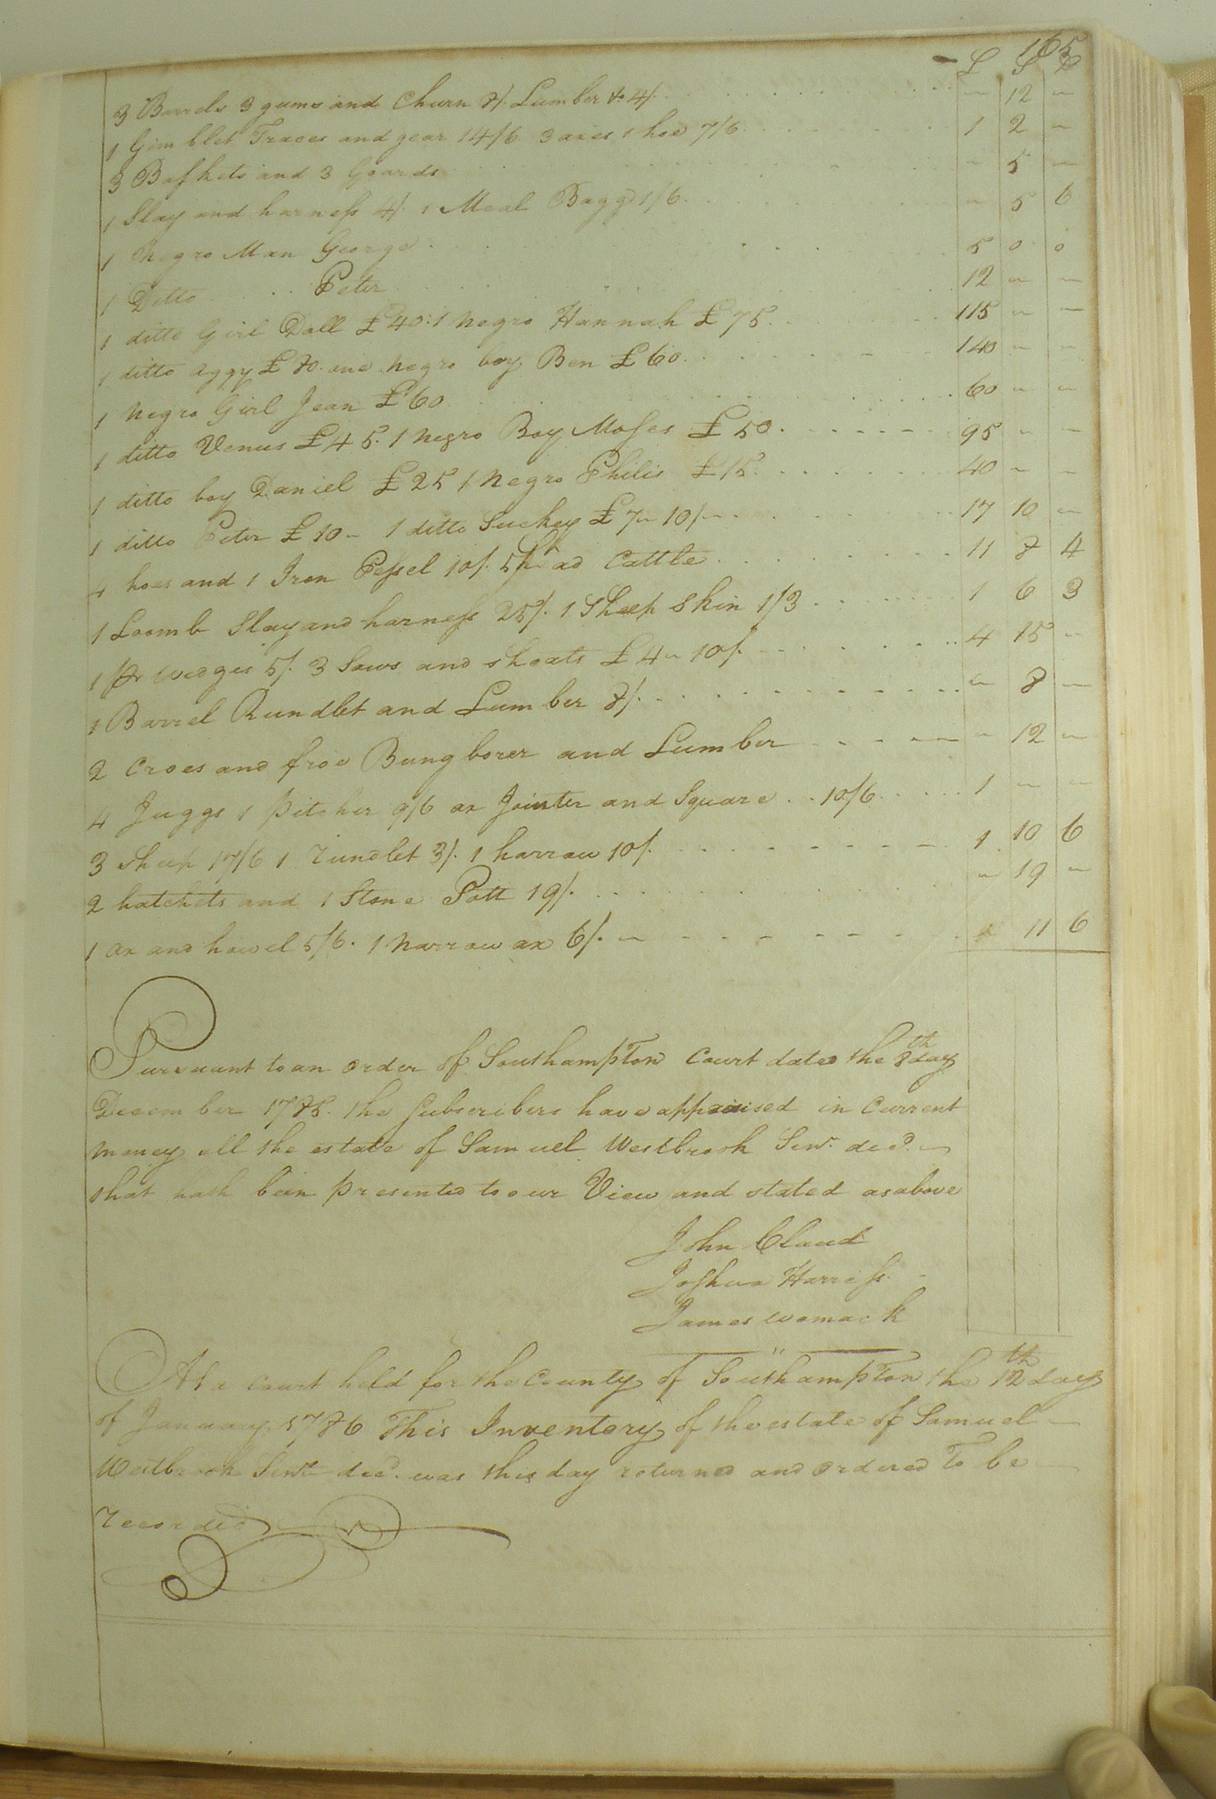 165
£ S D
3 Barrels 3 gums and Churn 8/. Lumber &c 4/. - 12 -
1 Gimblet Traces and gear 14/6 3 axes 1 hoe 7/6 1 2 -
3 Baskets and 3 Goards - 5 -
1 Slay and harness 4/. 1 Meal Bagg 1/6 - 5 6
1 Negro Man George 5 0 0
1 Ditto Peter 12 - -
1 ditto Girl Dall £40. 1 negro Hannah £75 115 - -
1 ditto Aggy £80. one negro boy Ben £60 140 - -
1 Negro Girl Jean £60 60 - -
1 ditto Venus £45. 1 negro Boy Moses £50 95 - -
1 ditto boy Daniel £25 1 Negro Philis £15 40 - -
1 ditto Peter £10 - 1 ditto Suckey £7 - 10/- 17 10 -
4 hoes and 1 Iron Pessel 10/. 5 head Cattle 11 8 4
1 Loomb Slay and harness 25/. 1 Sheep Skin 1/3 1 6 3
1 pr wedges 5/. 3 Sows and shoats £4 - 10/. 4 15 -
1 Barrel Rundlet and Lumber 8/. - 8 -
2 Croes and froe Bung borer and Lumber - 12 -
4 Juggs 1 pitcher 9/6 ax Jointer and Square 10/6 1 - -
3 Sheep 17/6 1 rundlet 3/. 1 harrow 10/. 1 10 6
2 hatchets and 1 Stone Pott 19/. - 19 -
1 ax and howel 5/6. 1 narrow ax 6/. - 11 6
Pursuant to an order of Southampton Court dated the 8th day
December 1785. the Subscribers have appraised in Current
money all the estate of Samuel Westbrook Senr. decd.
that hath been presented to our View and stated as above
John Claud
Joshua Harriss
James womack
At a court held for the County of Southampton the 12th day
of January 1786 This Inventory of the estate of Samuel
Westbrook Senr. decd. was this day returned and ordered To be
recorded